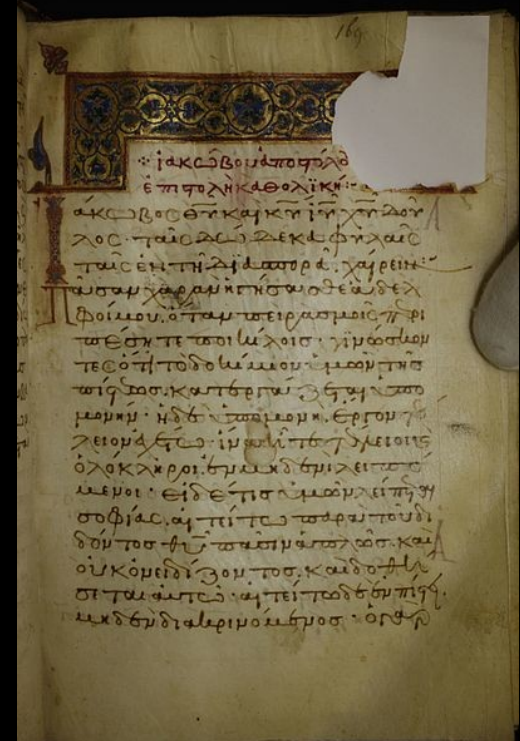 169
ἰακώβου ἀποστόλο
ἐπιστολὴ καθολϊκή:
Ἰάκωβος θυ καὶ κυ ιυ χυ δοῦ
λος· ταῖς δώδεκα φυλαῖς
ταῖς ἐν τῆ διασπορᾶ. χαίρειν:
Πᾶσαν χαρὰν ἡγήσασθε ἀδελ
φοί μου. ὅταν πειρασμοῖς περι
πέσητε ποικίλοις· γινώσκον
τες ὅτι τὸ δοκίμιον ὑμῶν τῆς
πίστεως. κατεργάζεται ὑπο
μονήν· ἡ δὲ ὑπομονὴ. ἔργον τέ
λειον ἐχέτω· ἵνα ἦτε τέλειοι καὶ
ὁλόκληροι. ἐν μηδενὶ λειπό
μενοι· εἰ δέ τις ὑμῶν λείπεται
σοφίας. αἰτείτω παρὰ τοῦ δι
δόντος θυ πᾶσιν ἁπλῶς. καὶ
οὐκ ὀνειδίζοντος. καὶ δοθή
σεται αὐτῶ· αἰτείτω δὲ ἐν πίστει.
μηδὲν διακρινόμενος· ὁ γὰρ